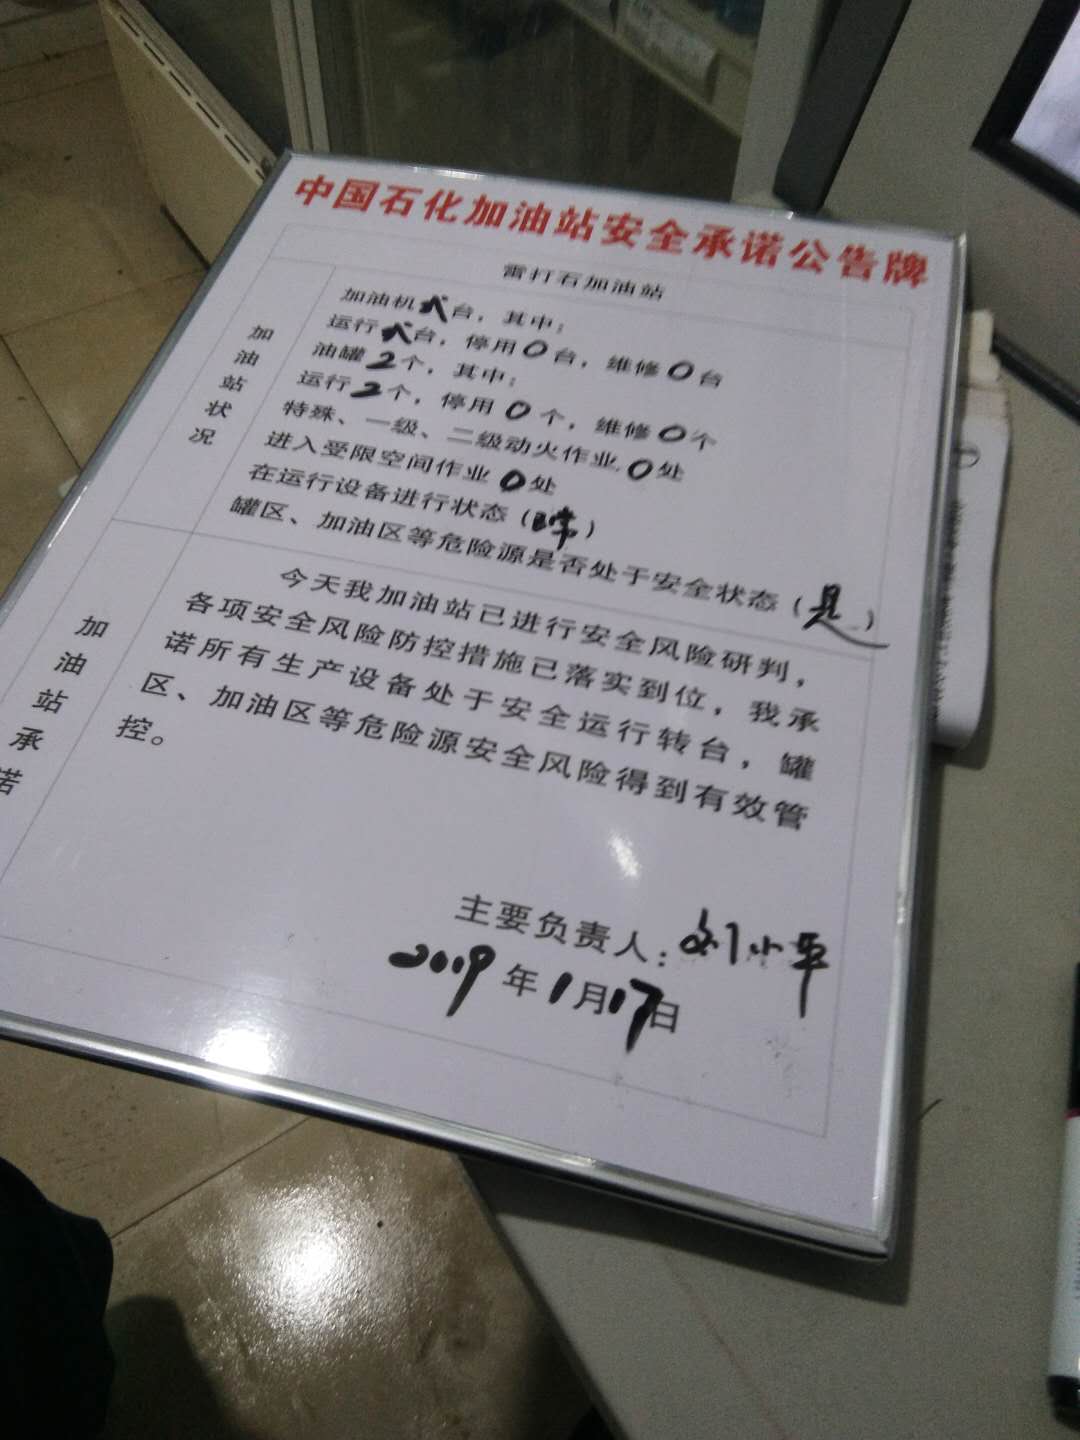 中国石化加油站安全承诺公告牌
雷打石加油站
加油站状况
加油机弍台，其中：
运行弍台，停用0台，维修0台
油罐2个，其中：
运行2个，停用0个，维修0个
特殊、一级、二级动火作业0处
进入受限空间作业0处
在运行设备进行状态（正常）
罐区、加油区等危险源是否处于安全状态（是）
加油站承诺
今天我加油站已进行安全风险研判，
各项安全风险防控措施已落实到位，我承
诺所有生产设备处于安全运行转台，罐
区、加油区等危险源安全风险得到有效管
控。
主要负责人：刘小平
2019年1月17日